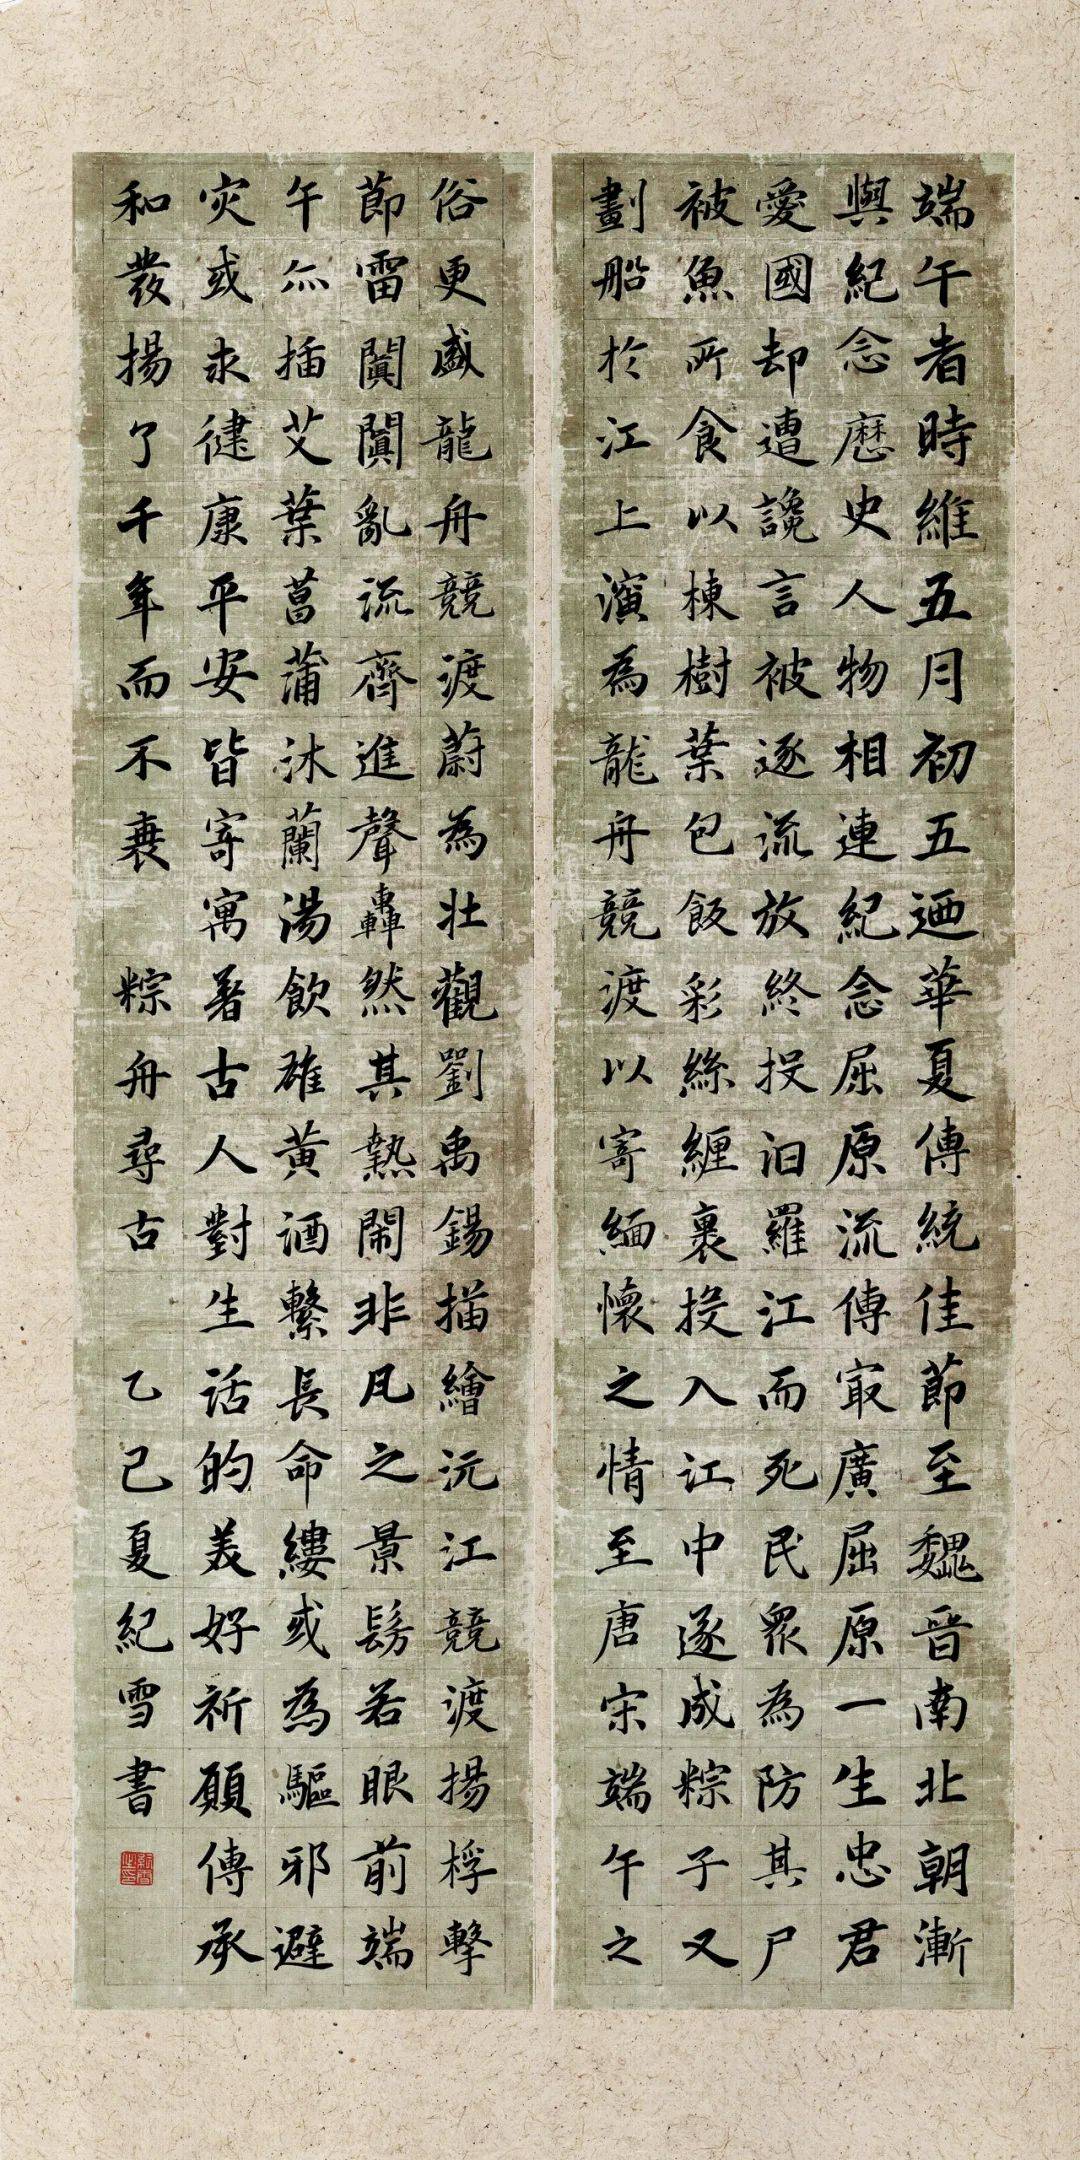 端午者時維五月初五迺華夏傳統佳節至魏晋南北朝漸
與紀念歷史人物相連紀念屈原流傳最廣屈原一生忠君
愛國却遭讒言被逐流放終投汨羅江而死民眾為防其尸
被魚所食以楝樹葉包飯彩絲纏裹投入江中遂成粽子又
劃船於江上演為龍舟競渡以寄緬懷之情至唐宋端午之
俗更盛龍舟競渡蔚為壯觀劉禹錫描繪沅江競渡揚桴擊
節雷闐闐亂流齊進聲轟然其熱鬧非凡之景髣若眼前端
午尒插艾葉菖蒲沐蘭湯飲雄黃酒繫長命縷或為驅邪避
灾或求健康平安皆寄寓著古人對生活的美好祈願傳承
和發揚了千年而不衰 粽舟尋古 乙巳夏紀雪書